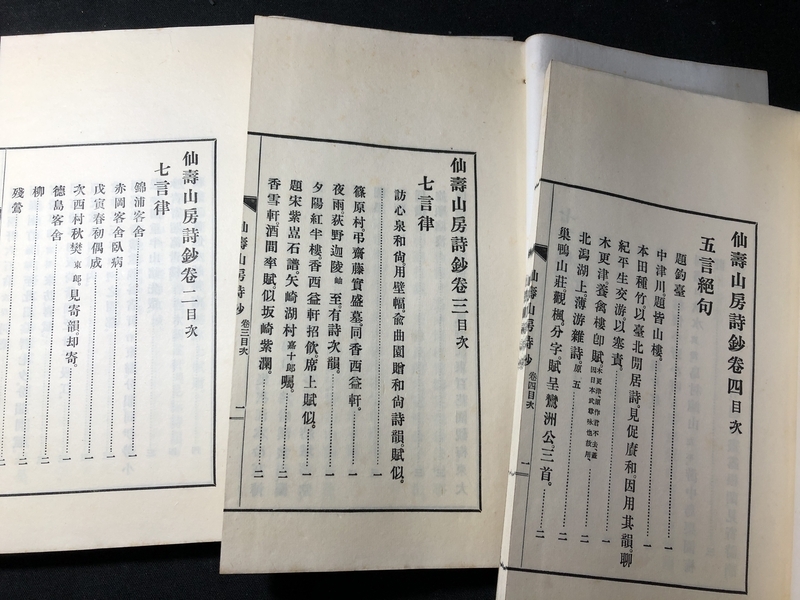 仙壽山房詩鈔卷四目次
五言絕句
題釣臺
中津川題皆山樓
本田種竹以臺北閒居詩見促賡和因用其韻聊
紀平生交游以塞責
木更津養禽樓卽賦
北潟湖上薄游雜詩原五
巢鴨山莊觀楓分字賦呈鶯洲公三首
仙壽山房詩鈔
卷四目次
一
仙壽山房詩鈔卷三目次
七言律
訪心泉和尙用壁幅俞曲園贈和尙詩韻賦似
篠原村弔齋藤實盛墓同香西益軒
夜雨荻野迦陵至有詩次韻
夕陽紅半樓香西益軒招飲席上賦似
題宋紫嵓石譜矢崎湖村嘉十郎囑
香雪軒酒間率賦似坂崎紫瀾
仙壽山房詩鈔
卷三目次
一
仙壽山房詩鈔卷二目次
七言律
錦浦客舍
赤岡客舍臥病
戊寅春初偶成
次西村秋樊東郎見寄韻却寄
德島客舍
柳
殘鶯